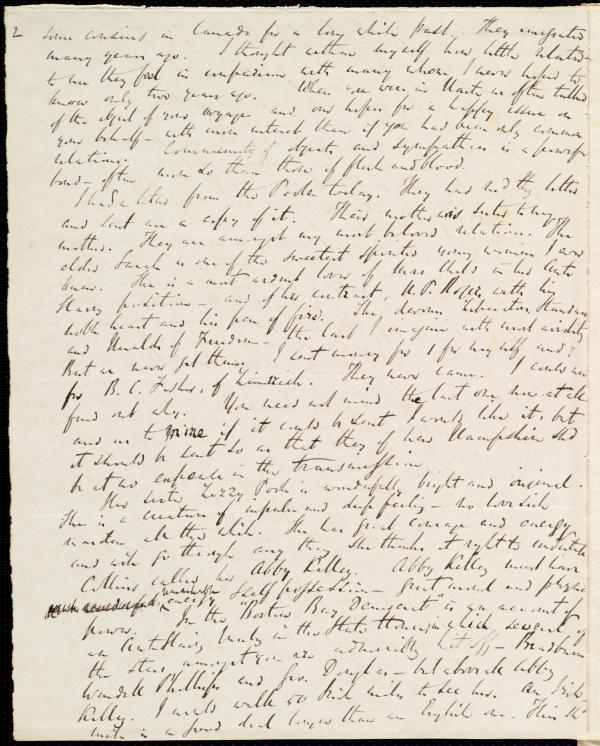 2 some cousins in Canada for a long while past. They emigrated
many years ago. I thought within myself how little relations
to me they feel in comparison with many whom I never hoped to
know only two years ago. When you were in Hayti we often talked
of the object of your voyage and our hopes for a happy issue on
your behalf - with more interest than if you had been only common
relations. Community of objects and sympathies is a powerful
bond - often more so than those of flesh and blood.
I had a letter from the Pooles today. They had rec'd thy letter
and sent me a copy of it. Their mother was sister to my
mother. They are amongst my most beloved relatives. The
elder Sarah is one of the sweetest spirited young women I ever
knew. She is a most ardent lover of Mrs Child in her Anti
Slavery position - and of her contrast, N. P. Rogers with his
noble heart and his pen of fire. They devour, Liberator, Standard
and Heralds of Freedom - the last I imagine with most avidity
But we never get them. I sent money for 1 for myself and 1
for B. C. Fisher, of Limerick. They never came. I could never
find out why. You need not mind the last one now at all
and as to mine if it could be sent I would like it, but
it should be sent so as that they of New Hampshire shd
be at no expense in the transmission
Her sister Lizzy Poole is wonderfully bright and original.
She is a creature of impulse and deep feeling - no lovesick
maiden all the while. She has great courage and energy
and will go through any thing she thinks it right to undertake
Collins calls her Abby Kelley. Abby Kelley must have
energy self possession - great mind and physical
powers. In the "Boston Bay Democrat" is an account of
an Anti Slavery meeting in the State House in which several of
the stars amongst you are admirably hit off - Bradburn
Wendell Phillips and Geo. Douglas - but above all Abby
Kelley. I would walk 50 Irish miles to see her. An Irish
mile is a good deal longer than an English one.